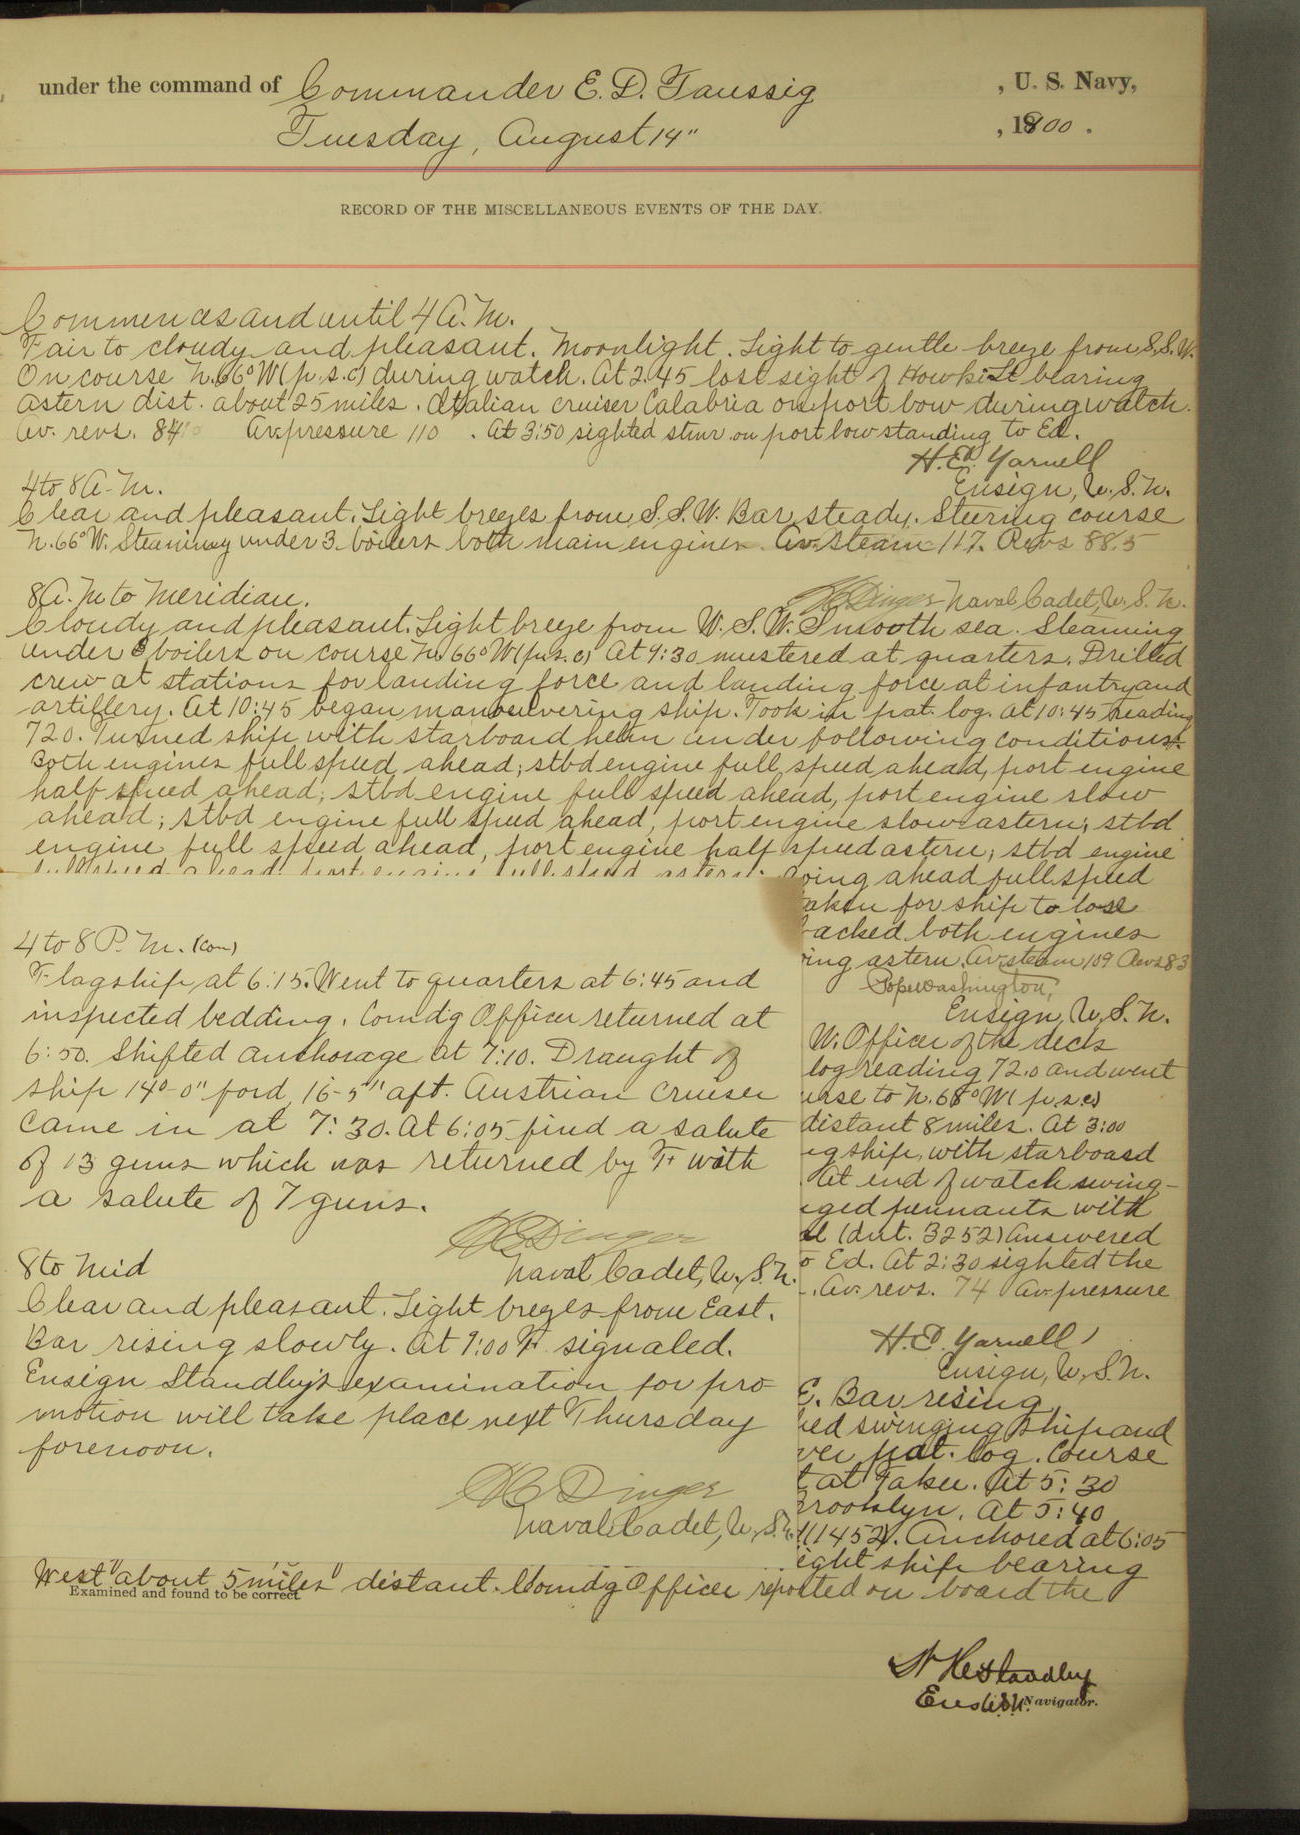 under the command of Commander E. D. Taussig , U. S. Navy,
Tuesday, August 14" , 1900 .
RECORD OF THE MISCELLANEOUS EVENTS OF THE DAY.
Commences and until 4 A. M.
Fair to cloudy and pleasant. Moonlight. Light to gentle breeze from S.S.W.
On course N. 66° W (p.s.c) during watch. At 2.45 lost sight of Howki Lt bearing
astern dist. about 25 miles. Italian cruiser Calabria on port bow during watch.
Av. revs. 84 Av. pressure 110 . At 3:50 sighted stmr on port bow standing to Ed.
H. E. Yarnell
Ensign, U. S. N.
4 to 8 A. M.
Clear and pleasant. Light breezes from S. S. W. Bar steady. Steering course
N. 66° W. Steaming under 3 boilers both main engines. Av. steam 117. Revs 88.5
H C Dinger Naval Cadet, U. S. N.
8 A. M to Meridian.
Cloudy and pleasant. Light breeze from W. S. W. Smooth sea. Steaming
under 3 boilers on course N. 66° W (p.s.c) At 9:30 mustered at quarters. Drilled
crew at stations for landing force and landing force at infantry and
artillery. At 10:45 began manoeuvering ship. Took in pat. log. at 10:45 reading
72.0. Turned ship with starboard helm under following conditions:
Both engines full speed ahead; stbd engine full speed ahead, port engine
half speed ahead; stbd engine full speed ahead, port engine slow
ahead; stbd engine full speed ahead, port engine slow astern; stbd
engine full speed ahead, port engine half speed astern; stbd engine
full speed ahead, port engine full speed astern; going ahead full speed
taken for ship to lose
backed both engines
ing astern. Av. steam 109 Revs 83
Pope Washington,
Ensign, U. S. N.
W. Officer of the deck
log reading 72.0 and went
urse to N. 68° W (p.s.c)
distant 8 miles. At 3:00
g ship, with starboard
At end of watch swing-
ged pennants with
al (dist. 3252) Answered
o Ed. At 2:30 sighted the
. Av. revs. 74 Av. pressure
H. E. Yarnell
Ensign, U. S. N.
E. Bar rising.
ed swinging ship and
ver pat. log. Course
t at Taku. At 5:30
Brooklyn. At 5:40
(1452). Anchored at 6:05
ight ship bearing
West" about 5 miles distant. Comdg Officer reported on board the
4 to 8 P. M. (con)
Flagship at 6:15. Went to quarters at 6:45 and
inspected bedding. Comdg Officer returned at
6:50. Shifted anchorage at 7:10. Draught of
ship 14'-0" ford, 16-5" aft. Austrian cruiser
came in at 7:30. At 6:05 fired a salute
of 13 guns which was returned by F with
a salute of 7 guns.
H C Dinger
Naval Cadet, U. S. N.
8 to Mid
Clear and pleasant. Light breezes from East.
Bar rising slowly. At 9:00 F signaled.
Ensign Standley's examination for pro-
motion will take place next Thursday
forenoon.
H C Dinger
Naval Cadet, U. S. N.
Examined and found to be correct
W H Standley
Ens U.S.N. Navigator.